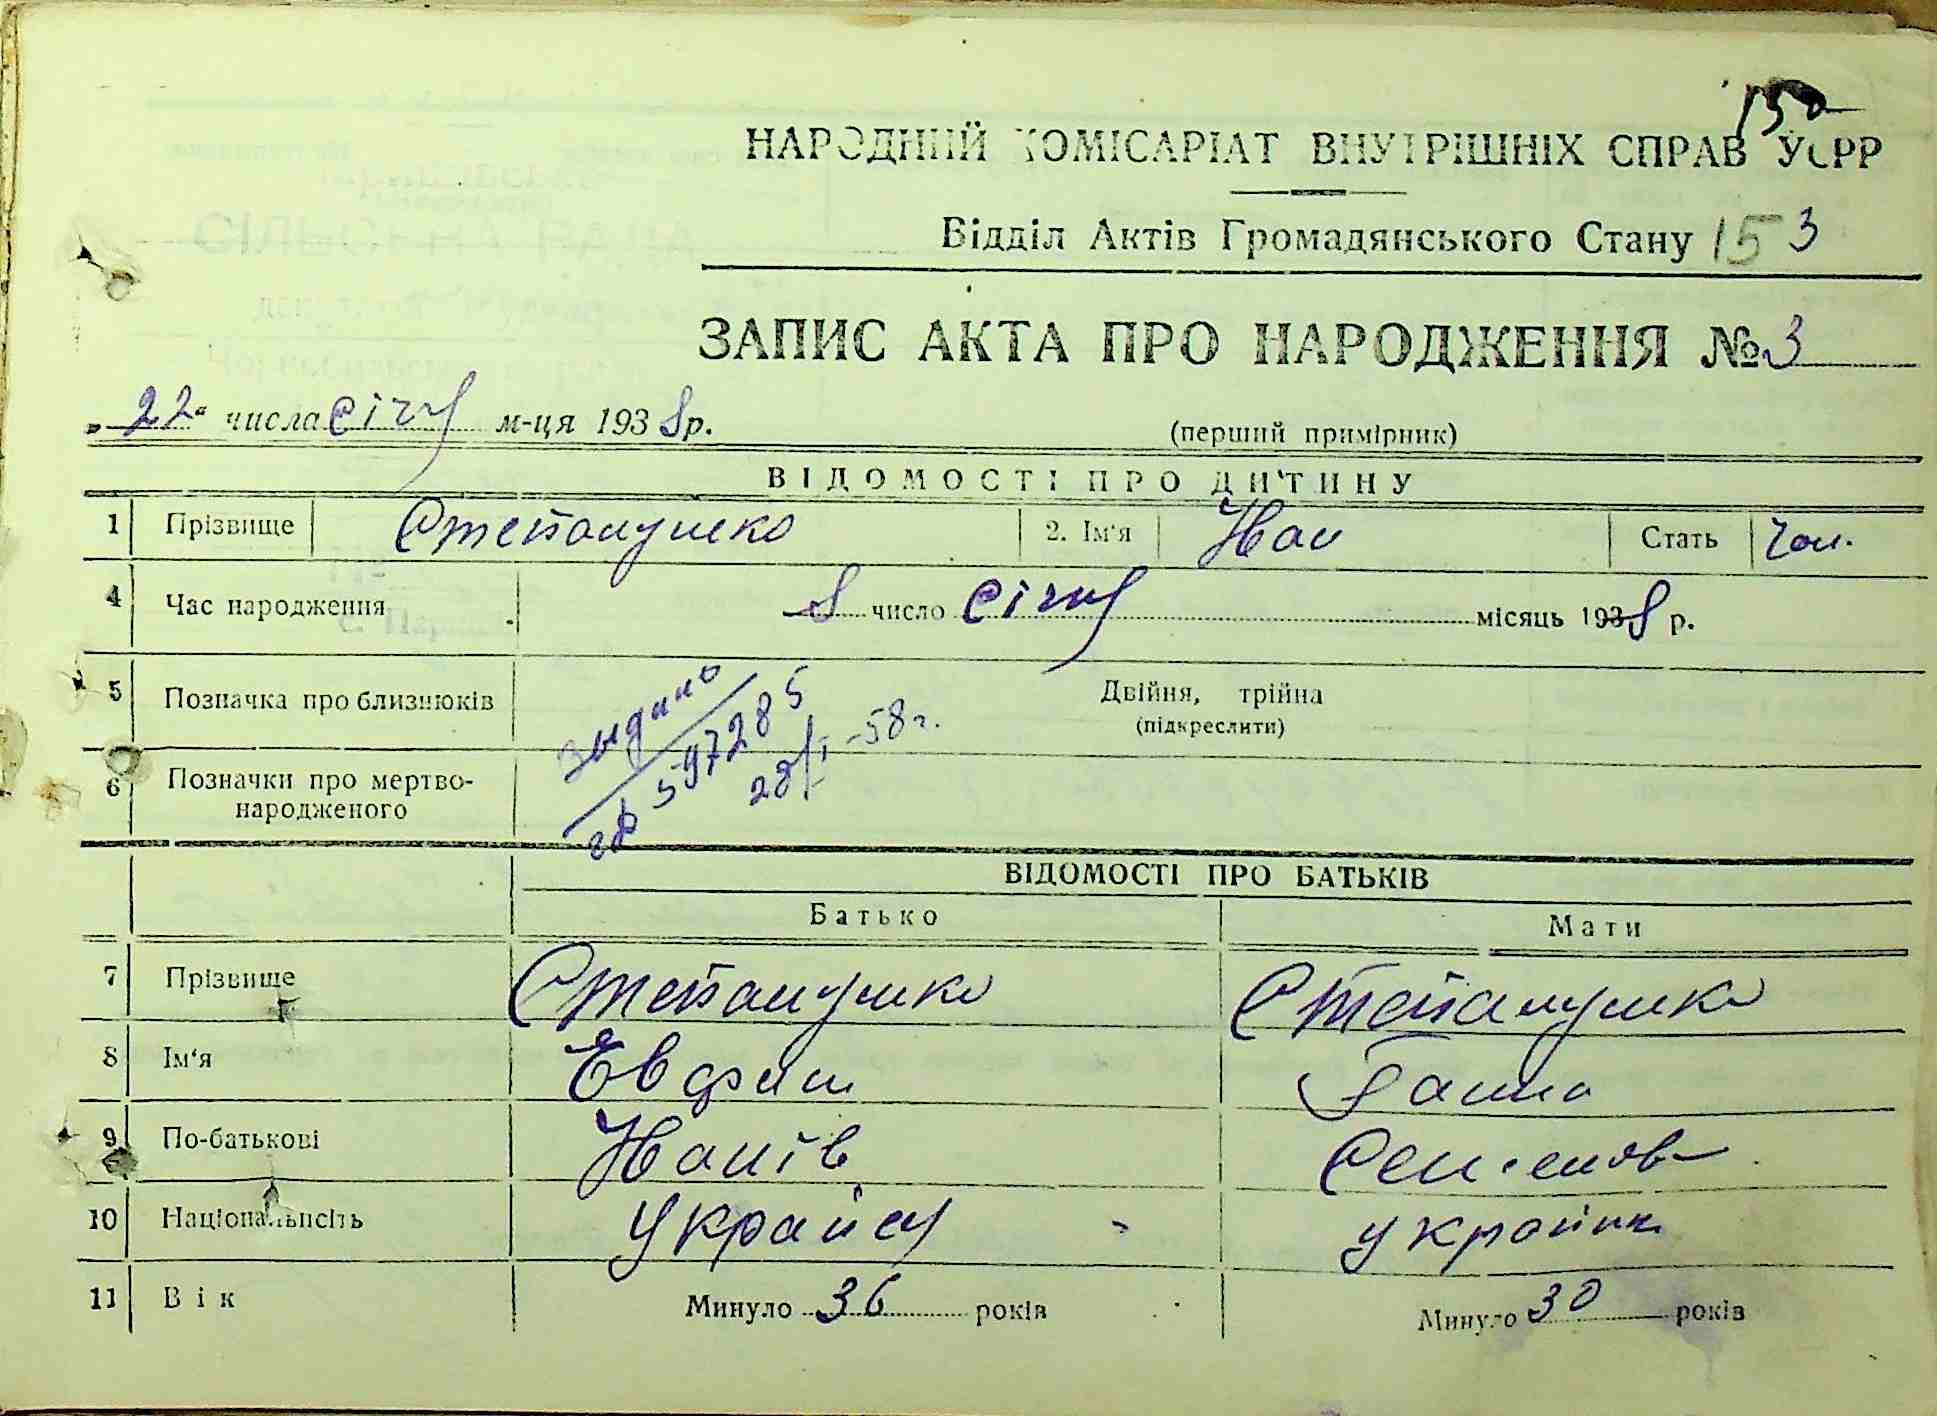 150
НАРОДНИЙ КОМІСАРІАТ ВНУТРІШНІХ СПРАВ УСРР
Відділ Актів Громадянського Стану 153
ЗАПИС АКТА ПРО НАРОДЖЕННЯ № 3
„22“ числа січня м-ця 1938 р.
(перший примірник)
ВІДОМОСТІ ПРО ДИТИНУ
1 Прізвище Степанушко 2. Ім'я Иван Стать чол.
4 Час народження 8 число січня місяць 1938 р.
5 Позначка про близнюків Двійня, трійна
(підкреслити)
выдано
гф 597285
28/I-58 г.
6 Позначки про мертво-
народженого
ВІДОМОСТІ ПРО БАТЬКІВ
Батько Мати
7 Прізвище Степанушко Степанушко
8 Ім'я Евфим Ганна
9 По-батькові Иванів Семенов
10 Національсіть україн україн
11 Вік Минуло 36 років Минуло 30 років